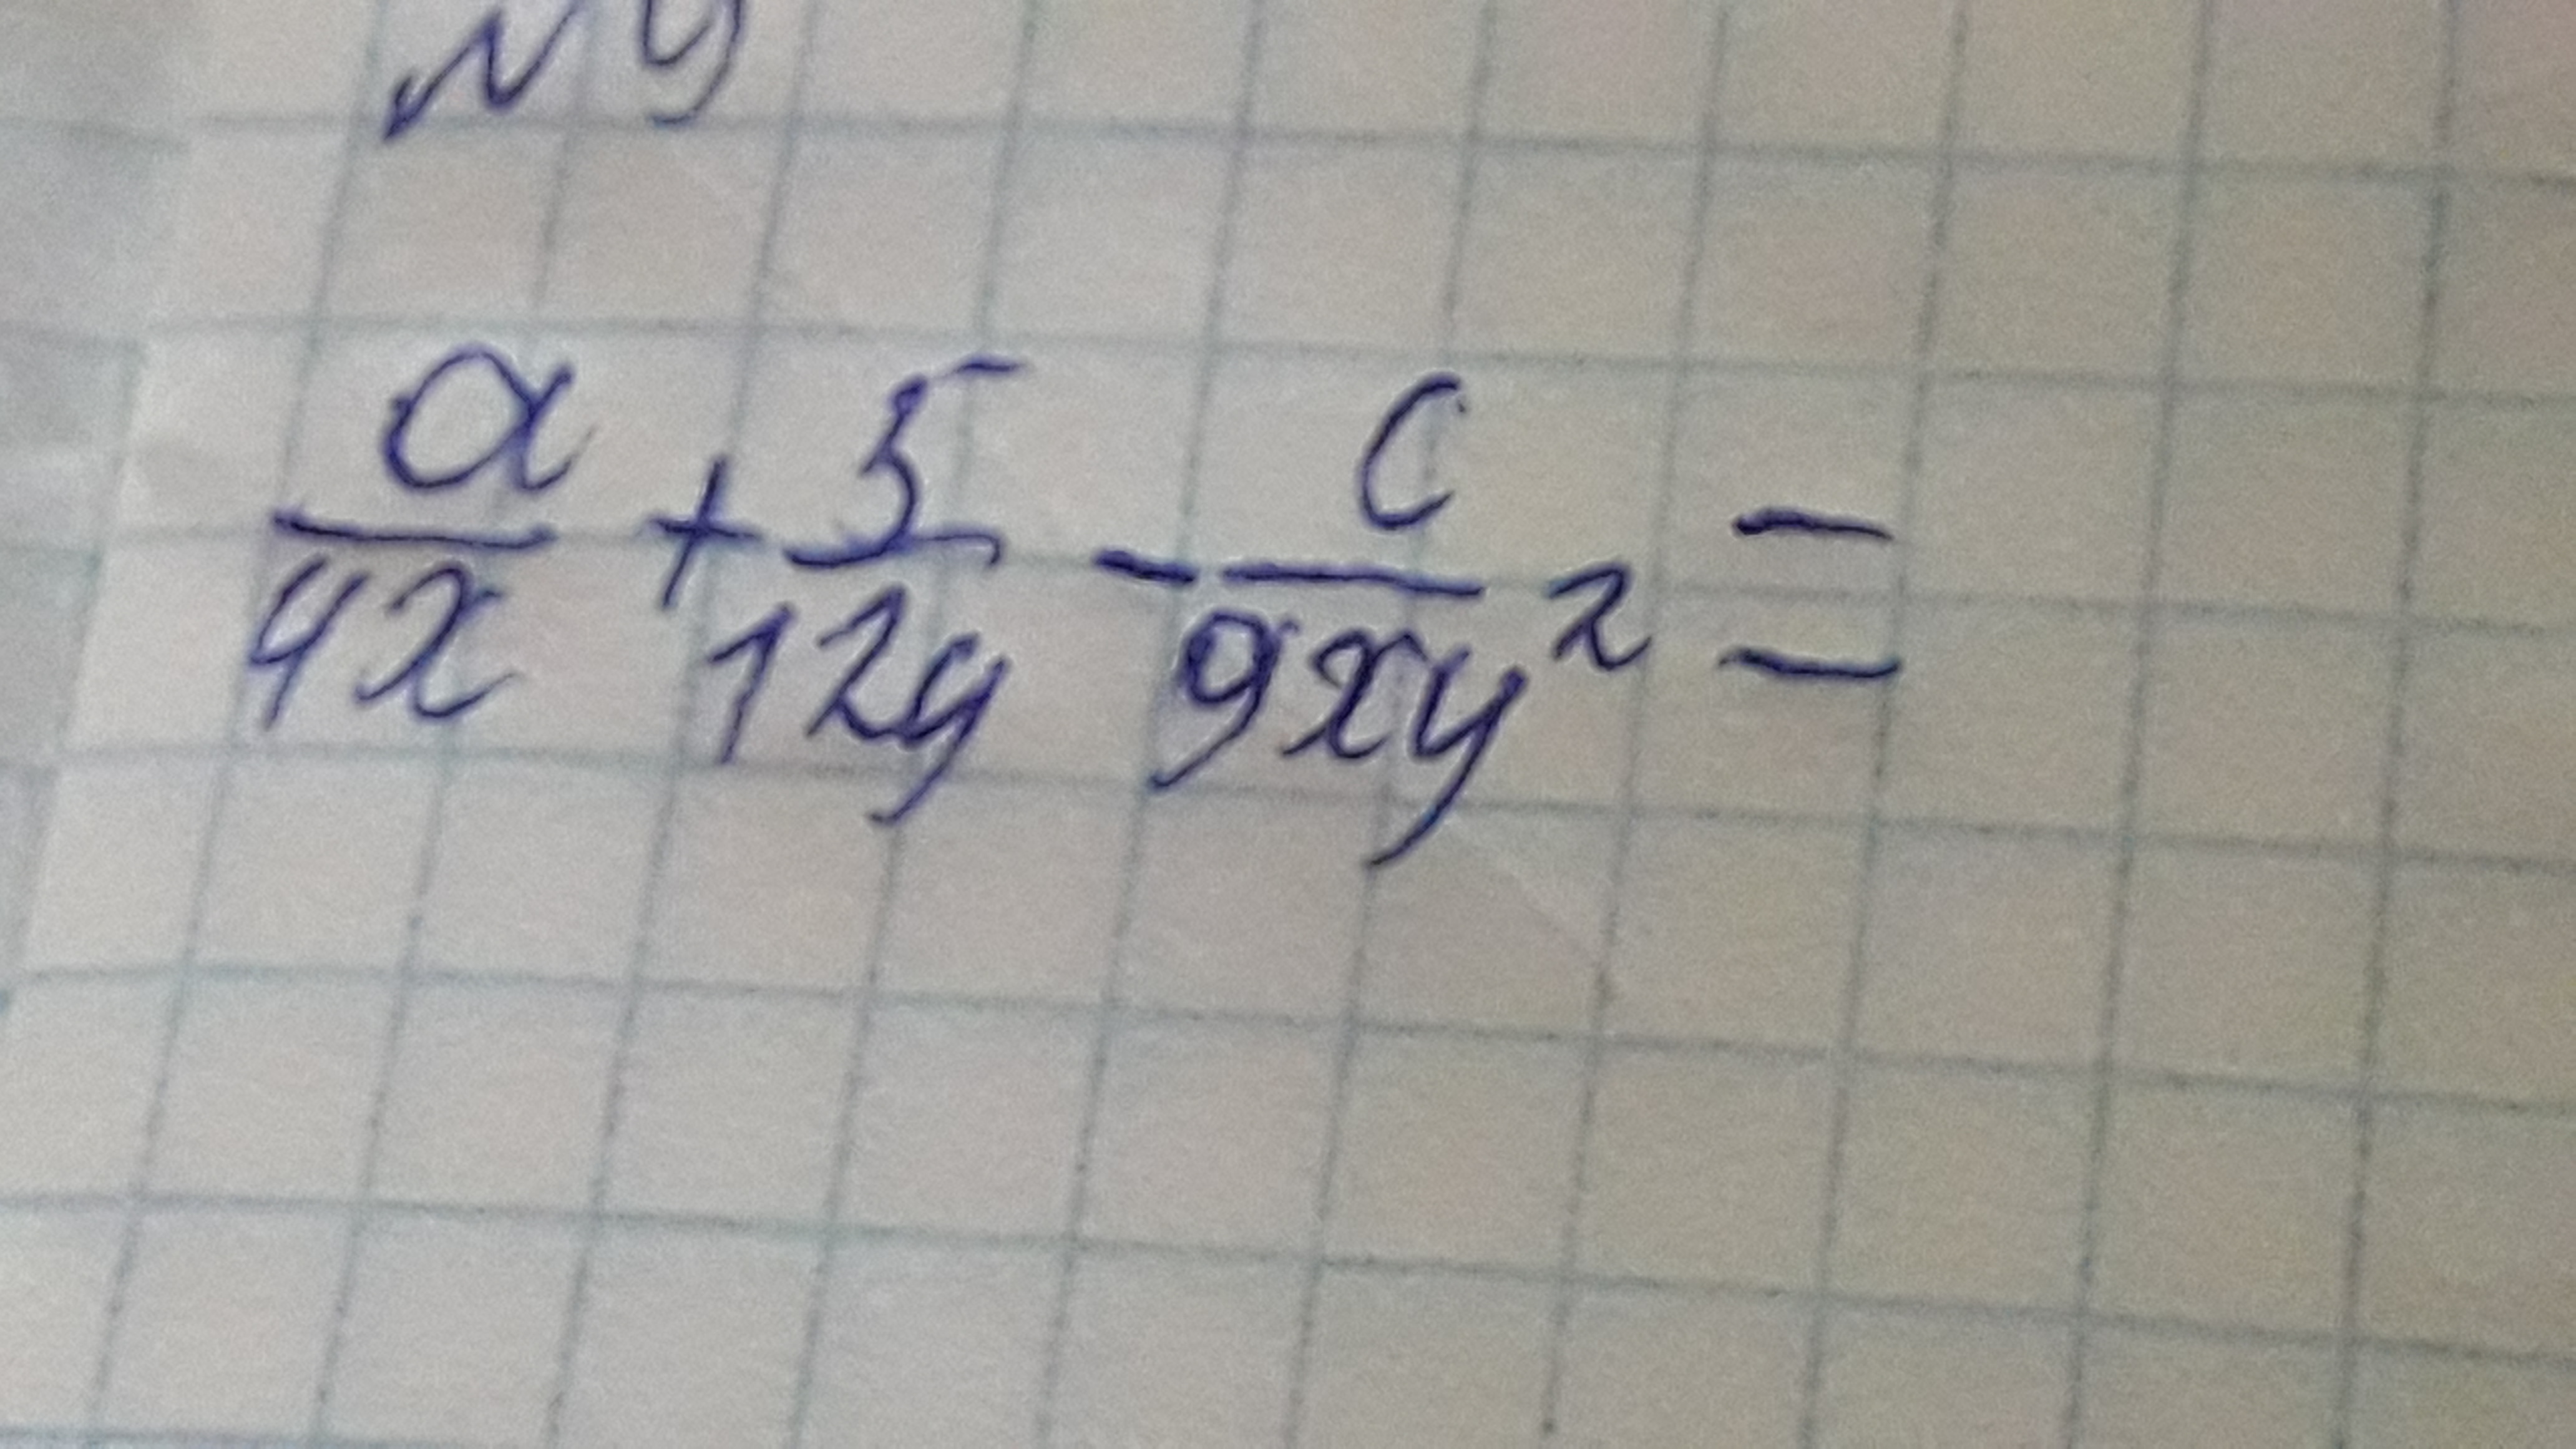 №9
a/4x + 5/12y - c/9xy² =